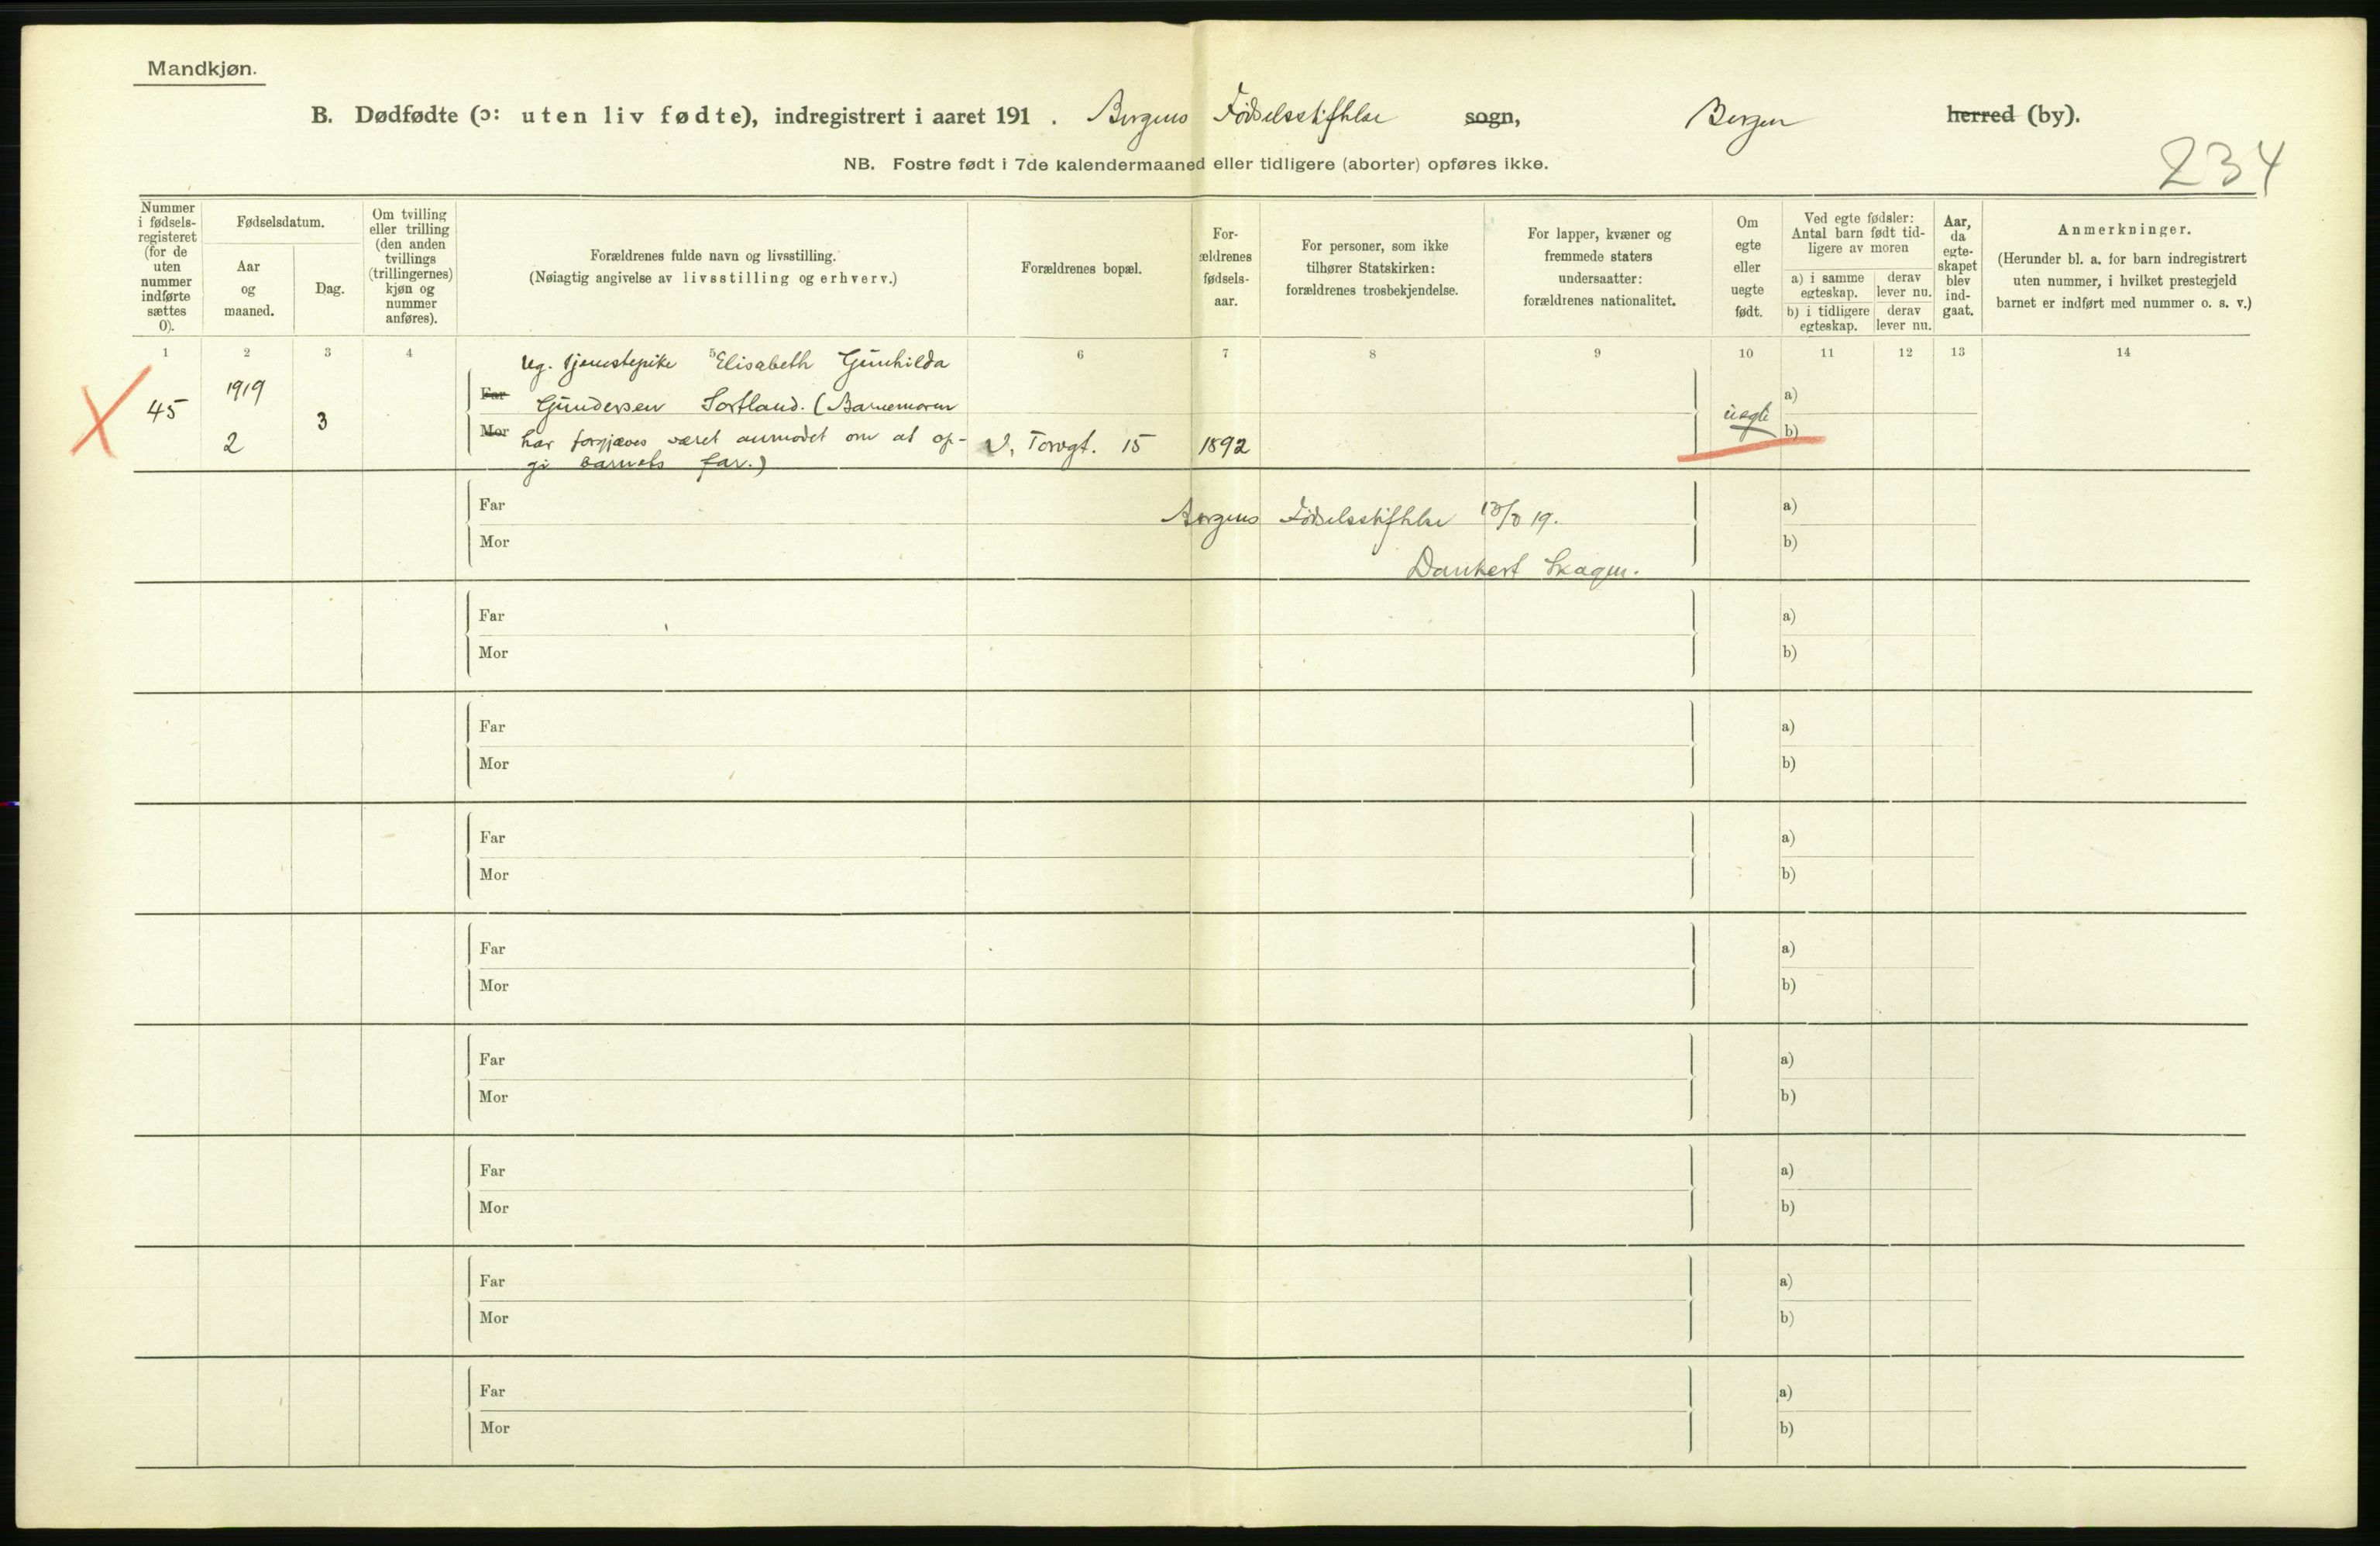 Mandkjøn.
B. Dødfødte (ɔ: uten liv fødte), indregistrert i aaret 191 . Bergens Fødselsstiftelse sogn, Bergen herred (by).
NB. Fostre født i 7de kalendermaaned eller tidligere (aborter) opføres ikke.
234
Nummer
i fødsels-
registeret
(for de
uten
nummer
indførte
sættes
0).
Fødselsdatum.
Aar
og
maaned.
Dag.
Om tvilling
eller trilling
(den anden
tvillings
(trillingernes)
kjøn og
nummer
anføres).
Forældrenes fulde navn og livsstilling.
(Nøiagtig angivelse av livsstilling og erhverv.)
Forældrenes bopæl.
For-
ældrenes
fødsels-
aar.
For personer, som ikke
tilhører Statskirken:
forældrenes trosbekjendelse.
For lapper, kvæner og
fremmede staters
undersaatter:
forældrenes nationalitet.
Om
egte
eller
uegte
født.
Ved egte fødsler:
Antal barn født tid-
ligere av moren
a) i samme
egteskap.
derav
lever nu.
b) i tidligere
egteskap.
derav
lever nu.
Aar,
da
egte-
skapet
blev
ind-
gaat.
Anmerkninger.
(Herunder bl. a. for barn indregistrert
uten nummer, i hvilket prestegjeld
barnet er indført med nummer o. s. v.)
1 2 3 4 5 6 7 8 9 10 11 12 13 14
45 1919 2 3
Ug. tjenestepike Elisabeth Gunhilda
Far Gundersen Sortland. (Barnemoren
Mor har forgjæves været anmodet om at op-
gi barnets far.)
V. Torvgt. 15 1892 uegte
a)
b)
Far a)
Bergens Fødselsstiftelse 19.
Mor b)
Dankert Skagen.
Far a)
Mor b)
Far a)
Mor b)
Far a)
Mor b)
Far a)
Mor b)
Far a)
Mor b)
Far a)
Mor b)
Far a)
Mor b)
Far a)
Mor b)